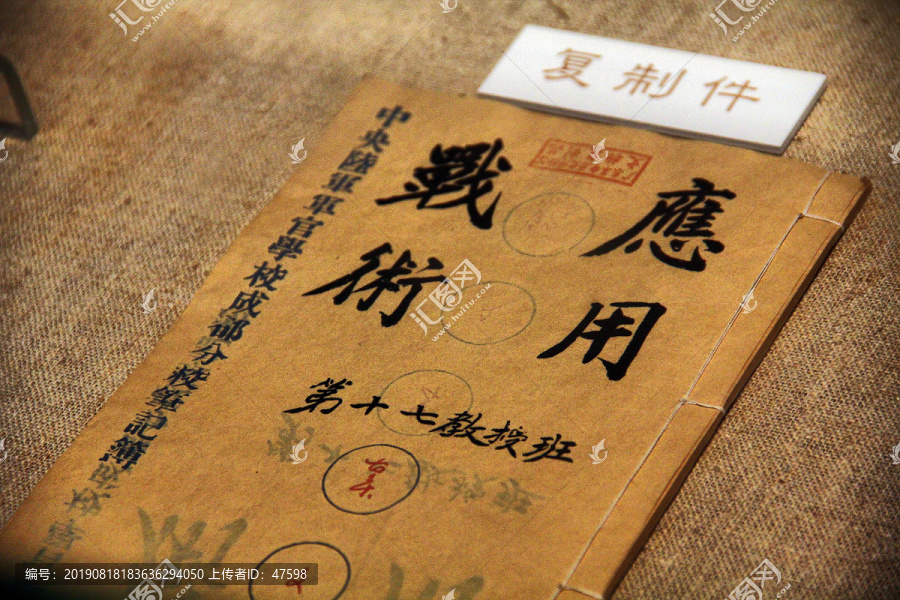 复制件
應用
戰術
第十七教授班
中央陸軍軍官學校成都分校筆記簿
编号：20190818183636294050 上传者ID：47598
汇图网
www.huitu.com